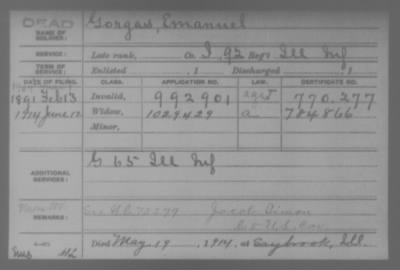 DEAD
NAME OF SOLDIER: Gorgas, Emanuel
SERVICE: Late rank, Co. I, 92 Reg't Ill Inf
TERM OF SERVICE: Enlisted , 1 Discharged , 1
DATE OF FILING. CLASS. APPLICATION NO. LAW. CERTIFICATE NO.
1891 Feb 13 Invalid, 992901 770.277
1914 June 12 Widow, 1029429 a 784866
Minor,
ADDITIONAL SERVICES: G 65 Ill Inf
REMARKS: Jacob Simon
Died May 19, 1914, at Saybrook, Ill.